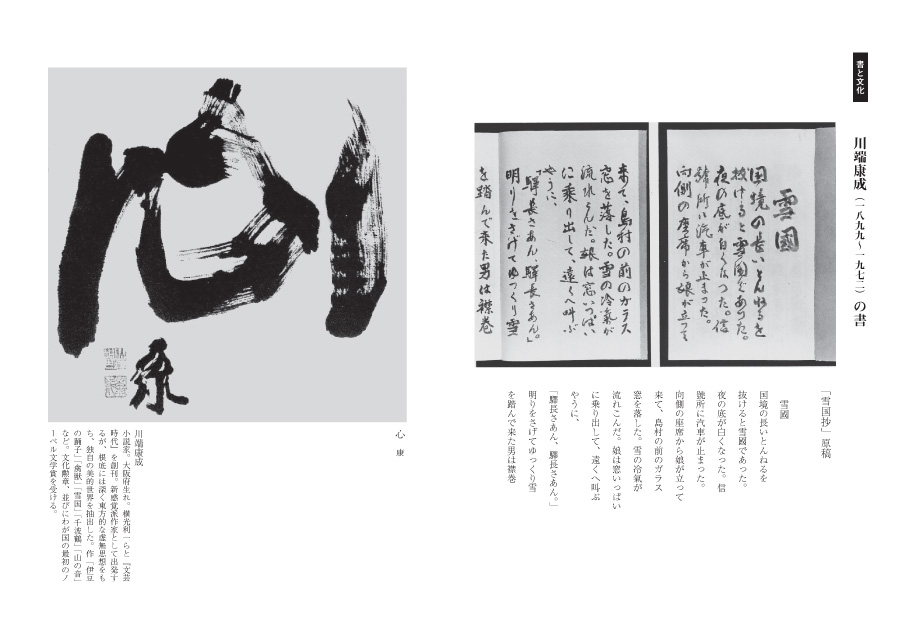 書と文化
川端康成（一八九九～一九七二）の書
雪國
国境の長いとんねるを
抜けると雪國であつた。
夜の底が白くなつた。信
號所に汽車が止まつた。
向側の座席から娘が立つて
来て、島村の前のガラス
窓を落した。雪の冷氣が
流れこんだ。娘は窓いつぱい
に乗り出して、遠くへ叫ぶ
やうに、
「驛長さあん、驛長さあん。」
明りをさげてゆつくり雪
を踏んで来た男は襟巻
「雪国抄」原稿
雪國
国境の長いとんねるを
抜けると雪國であった。
夜の底が白くなった。信
號所に汽車が止まった。
向側の座席から娘が立って
来て、島村の前のガラス
窓を落した。雪の冷氣が
流れこんだ。娘は窓いっぱい
に乗り出して、遠くへ叫ぶ
やうに、
「驛長さあん、驛長さあん。」
明りをさげてゆっくり雪
を踏んで来た男は襟巻
心
康
心　康
川端康成
小説家。大阪府生れ。横光利一らと『文芸
時代』を創刊。新感覚派作家として出発す
るが、根底には深く東方的な虚無思想をも
ち、独自の美的世界を抽出した。作「伊豆
の踊子」「禽獣」「雪国」「千波鶴」「山の音」
など。文化勲章、並びにわが国の最初のノ
ーベル文学賞を受ける。